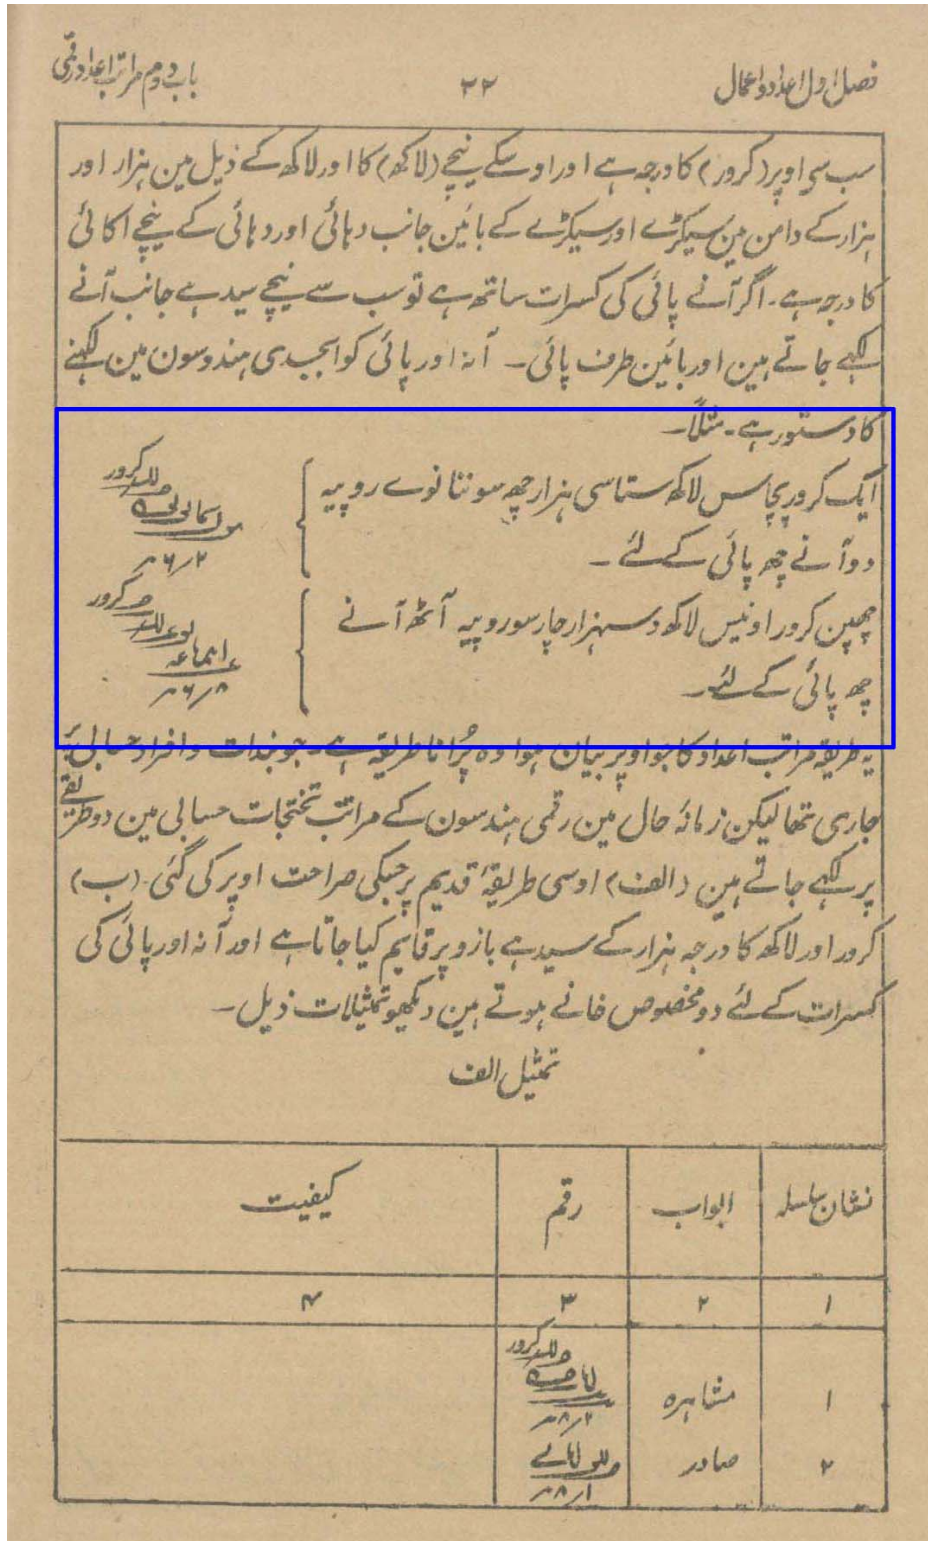 فصل اول اعداد و اعمال
۲۲
باب دوم مراتب اعداد رقمی
سب سی اوپر (کرور) کا درجہ ہے اور اوسکے نیچے (لاکھ) کا اور لاکھ کے ذیل مین ہزار اور
ہزار کے دامن مین سیکڑے اور سیکڑے کے بائین جانب دہائی اور دہائی کے نیچے اکائی
کا درجہ ہے۔ اگر آنے پائی کی کسرات ساتھ ہے تو سب سے نیچے سیدہے جانب آنے
لکہے جاتے ہین اور بائین طرف پائی۔ آنہ اور پائی کو ابجدی ہندوسون مین لکہنے
کا دستور ہے۔ مثلاً۔
ایک کرور پچاس لاکھ ستاسی ہزار چھ سو ننانوے روپیہ
دو آنے چھ پائی کے لئے۔
کرور
۲؍۶
چھپن کرور اونیس لاکھ دسہزار چار سو روپیہ آٹھ آنے
چھ پائی کے لئے۔
کرور
۸؍۶
یہ طریقہ مراتب اعداد کا جو اوپر بیان ہوا وہ پُرانا طریقہ ہے۔ جو بندات و افراد حسابی پر
جاری تھا لیکن زمانہ حال مین رقمی ہندسون کے مراتب تختجات حسابی مین دو طریقے
پر لکہے جاتے ہین (الف) اوسی طریقۂ قدیم پر جسکی صراحت اوپر کی گئی۔ (ب)
کرور اور لاکھ کا درجہ ہزار کے سیدہے بازو پر قایم کیا جاتا ہے اور آنہ اور پائی کی
کسرات کے لئے دو مخصوص خانے ہوتے ہین دیکھو تمثیلات ذیل۔
تمثیل الف
نشان سلسلہ ابواب رقم کیفیت
۱ ۲ ۳ ۴
۱ مشاہرہ کرور ۲؍۸
۲ صادر ۱؍۸